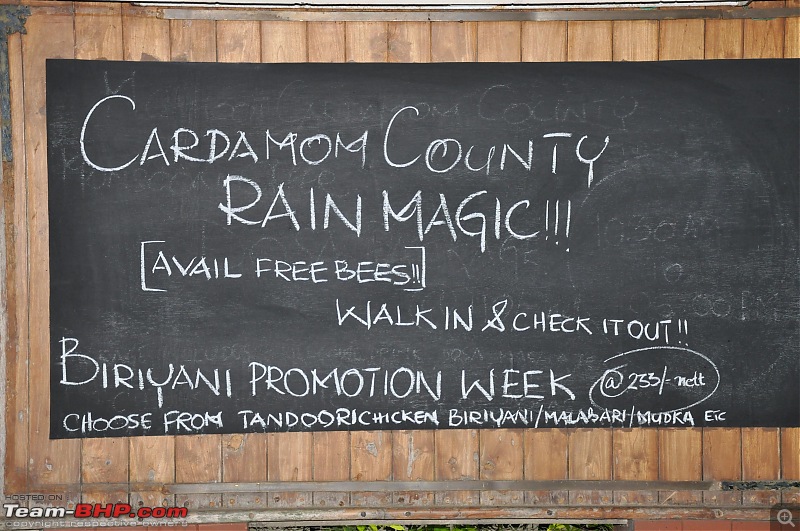 CARDAMOM COUNTY
RAIN MAGIC!!!
[AVAIL FREE BEES!!]
WALK IN & CHECK IT OUT!!
BIRIYANI PROMOTION WEEK @ 233/- nett
CHOOSE FROM TANDOORI CHICKEN BIRIYANI/MALABARI/MUDKA ETC
HOSTED ON
Team-BHP.com
copyright respective owners